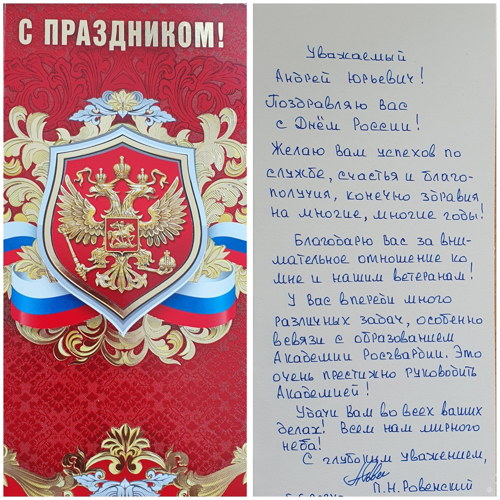 С ПРАЗДНИКОМ!
Уважаемый
Андрей Юрьевич!
Поздравляю Вас
с Днём России!
Желаю Вам успехов по
службе, счастья и благо-
получия, конечно здравия
на многие, многие годы!
Благодарю вас за вни-
мательное отношение ко
мне и нашим ветеранам!
У Вас впереди много
различных задач, особенно
всвязи с образованием
Академии Росгвардии. Это
очень престижно руководить
Академией!
Удачи Вам во всех ваших
делах! Всем нам мирного
неба!
С глубоким уважением,
П.Н.Ровенский